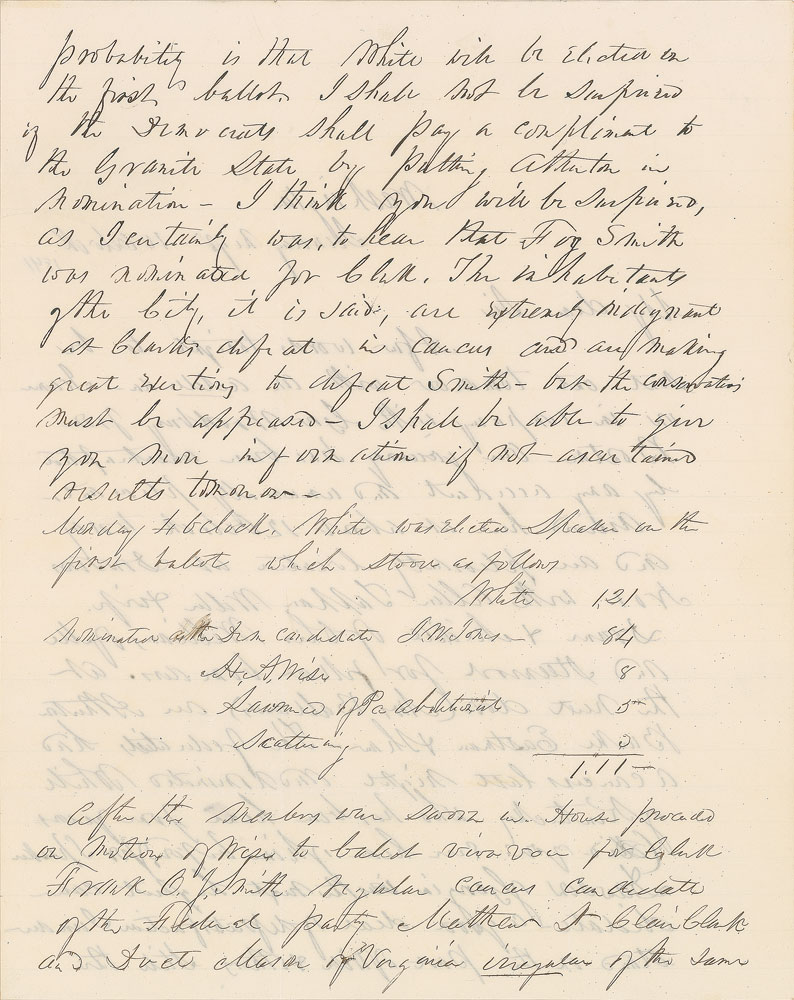 probability is that White will be elected on
the first ballot. I shall not be surprised
if the Democrats shall pay a compliment to
the Granite State by putting Atherton in
nomination – I think you will be surprised,
as I certainly was, to hear that Fog Smith
was nominated for Clerk. The inhabitants
of the City, it is said, are extremely indignant
at Clarks defeat in caucus and are making
great exertions to defeat Smith – but the conservatives
must be appeased – I shall be able to give
you more information if not ascertained
results tomorrow –
Monday 4 oclock. White was elected Speaker on the
first ballot which stood as follows
White 121
Nominated as the Dem candidate J. W. Jones 84
H. A. Wise 8
Lawrence of Pa abolitionist 5
Scattering 3
After the members were sworn in. House proceeded
on motion of Wise to ballot viva voce for Clerk
Frank O. J. Smith regular caucus candidate
of the Federal party Mathew St Clair Clark
and Doct Mason of Virginia irregular of the same